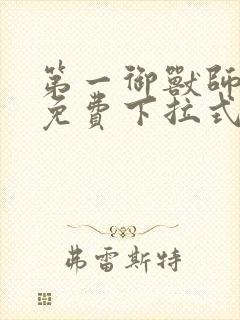 第一御獸師
免費下拉式
弗雷斯特